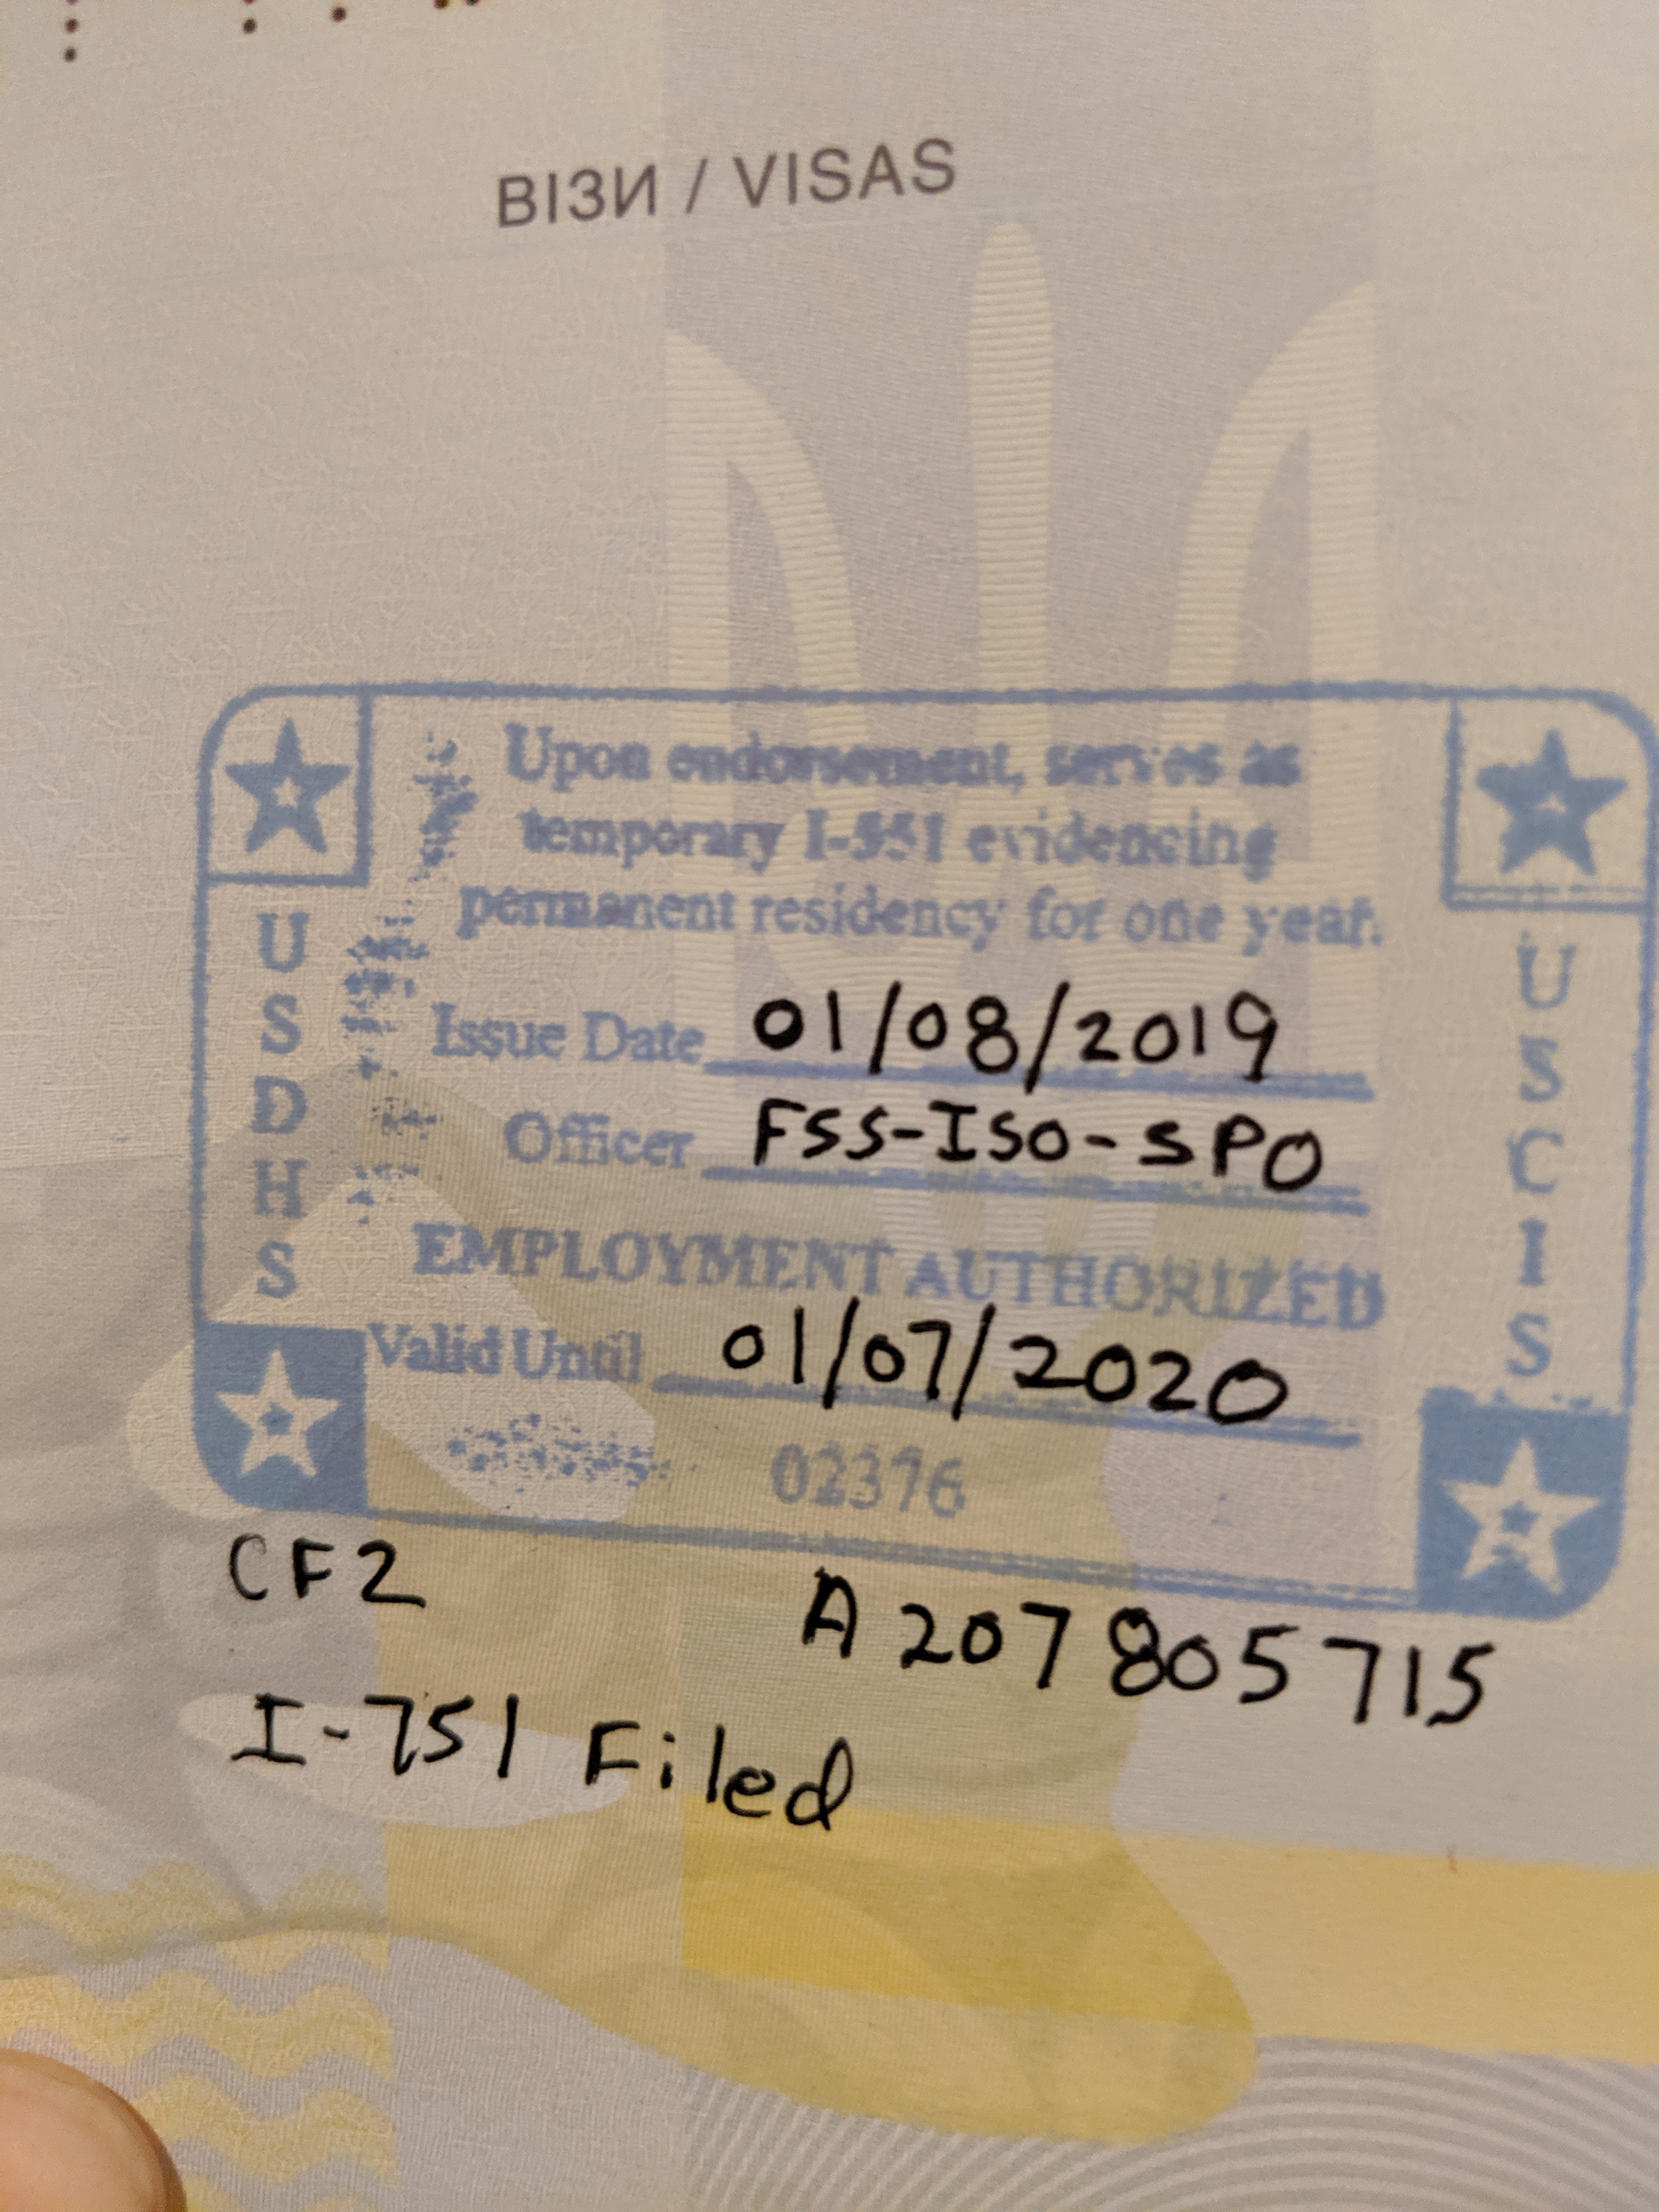 ВІЗИ / VISAS
Upon endorsement, serves as
temporary I-551 evidencing
permanent residency for one year.
USDHS
USCIS
Issue Date 01/08/2019
Officer FSS-ISO-SPO
EMPLOYMENT AUTHORIZED
Valid Until 01/07/2020
02376
CF2
A207805715
I-751 Filed